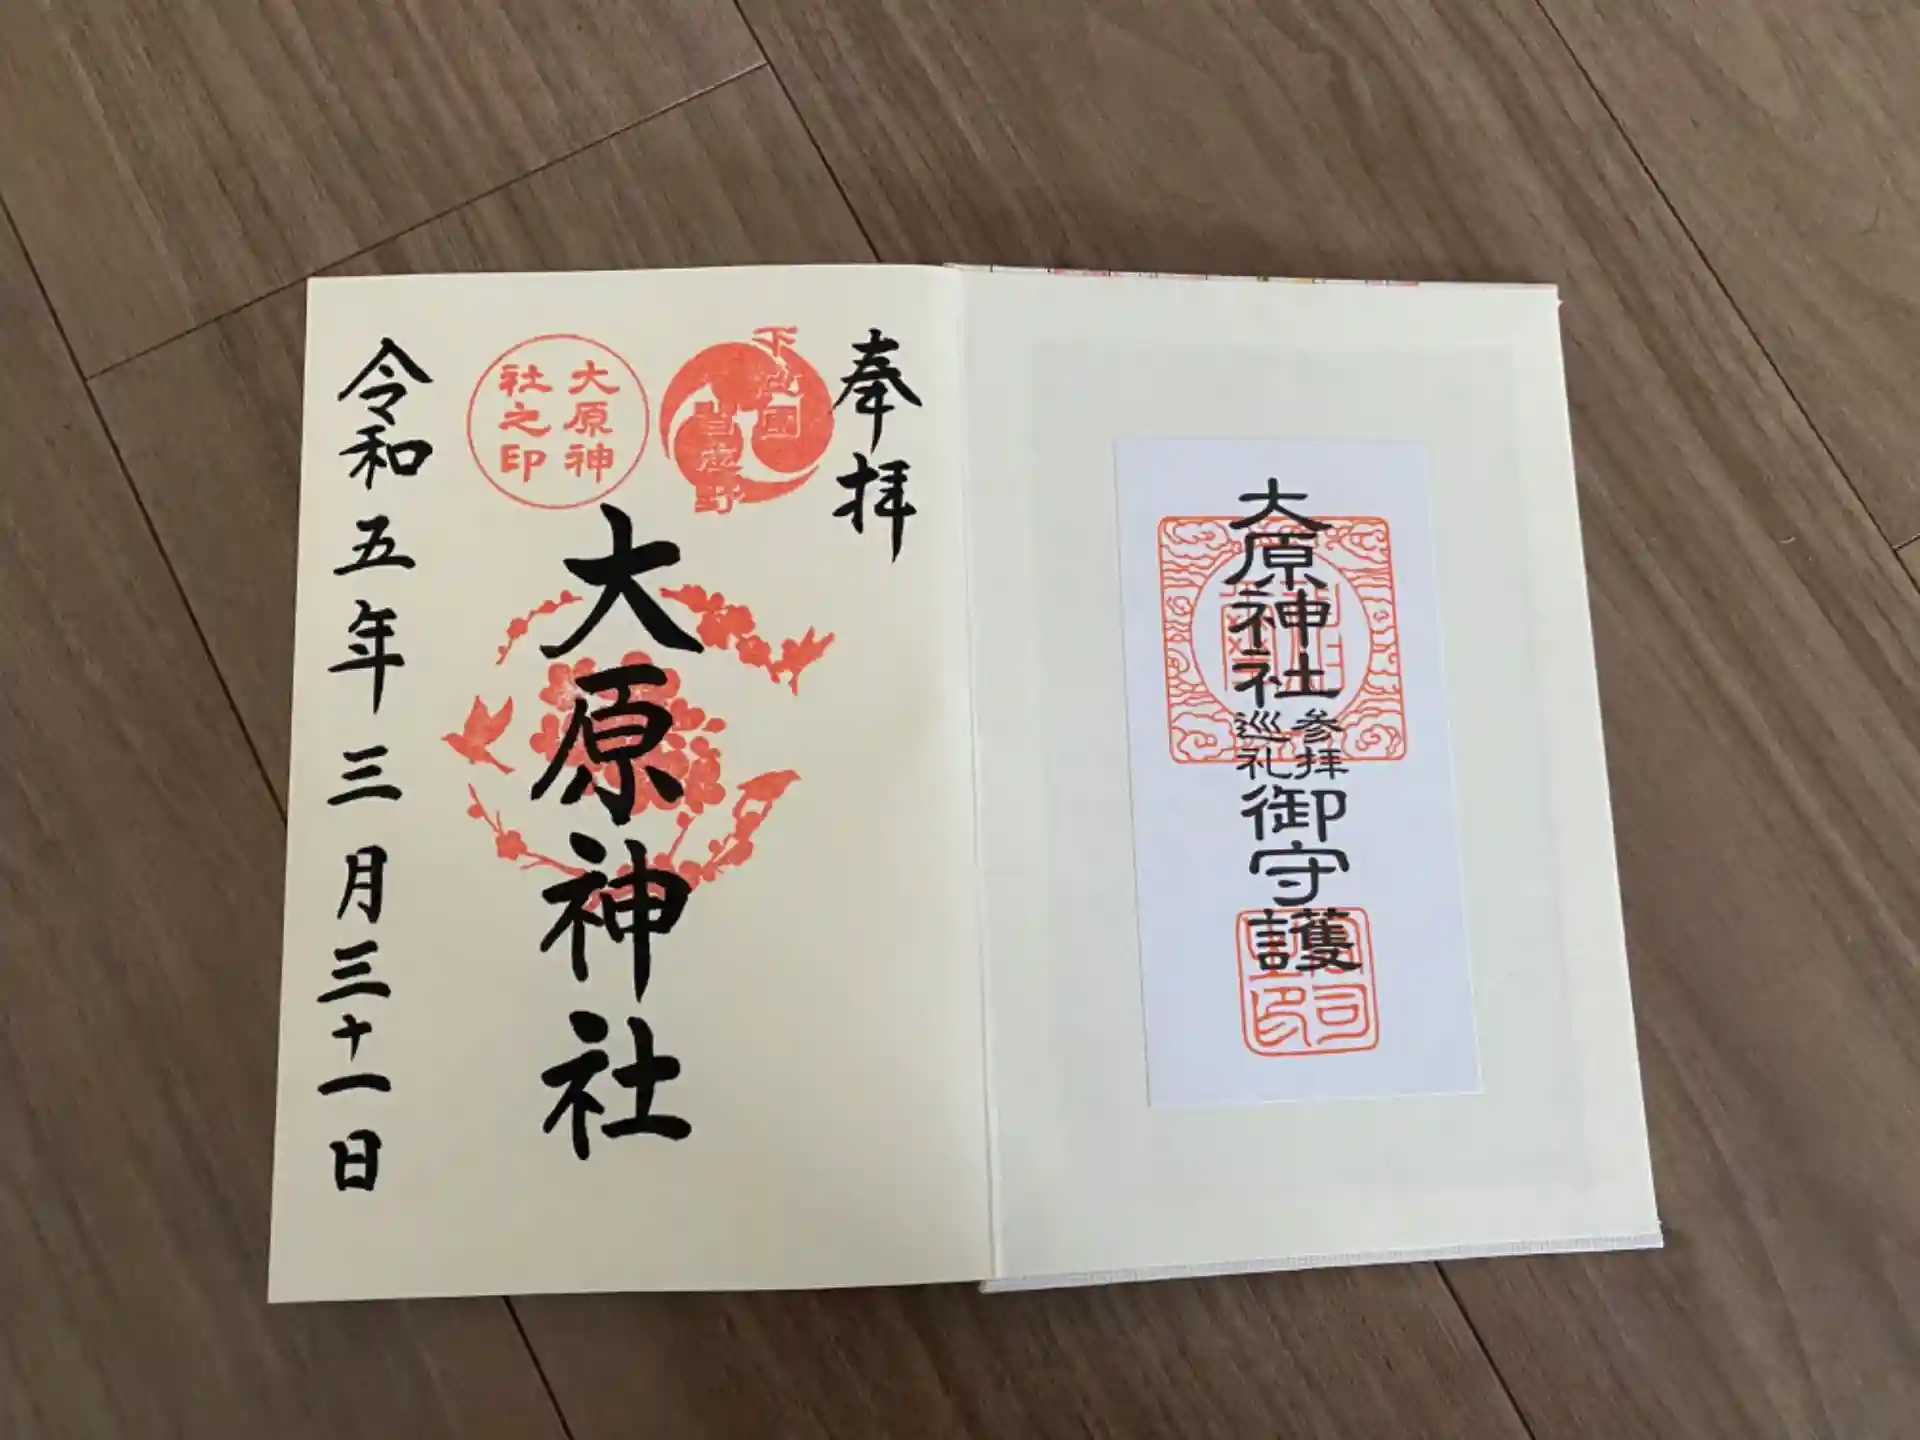 大原神社
参拝
巡礼
御守護
奉拝
下総国
習志野
大原神
社之印
大原神社
令和五年三月三十一日